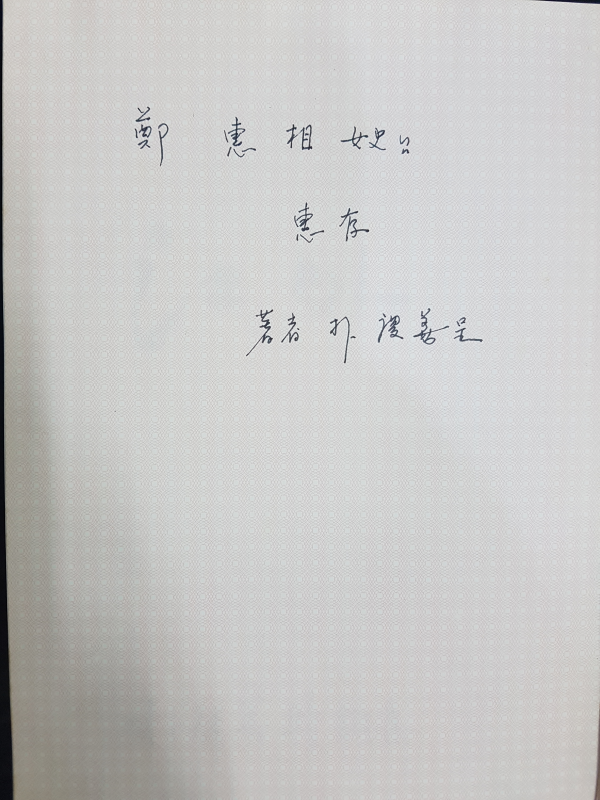 鄭 惠 相 女史
惠 存
著者 朴 善 呈